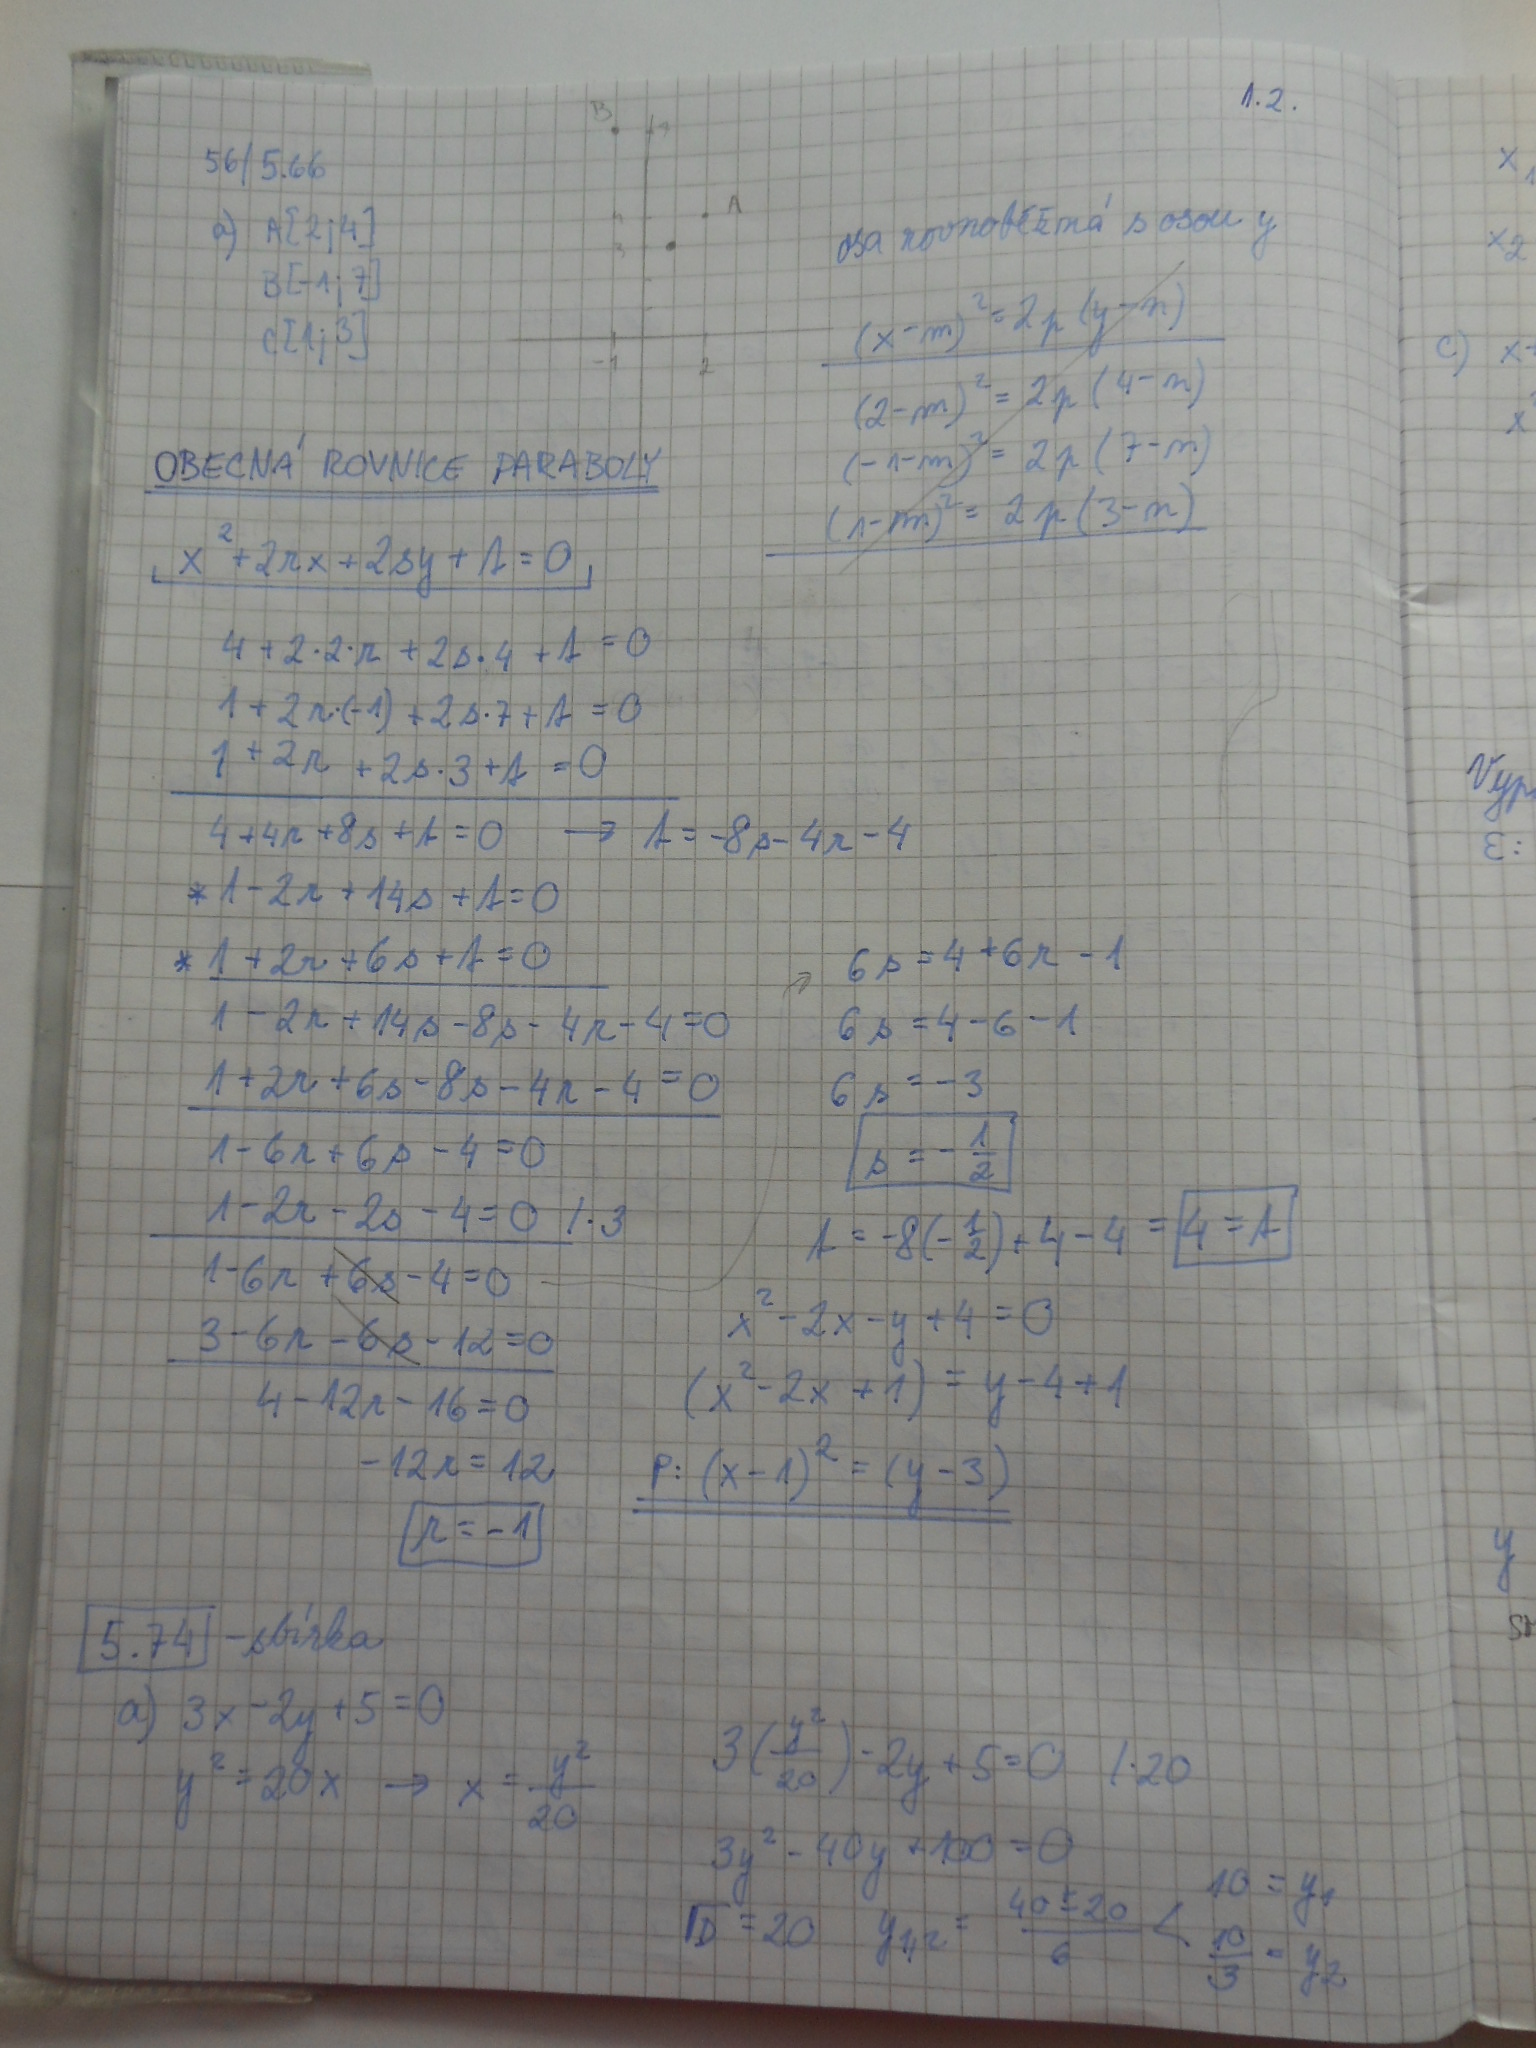 1.2.
56/5.66
a) A[2;4]
B[-1;7]
C[1;3]
B
7
A
4
3
-1 2
osa rovnoběžná s osou y
(x-m)² = 2p(y-n)
(2-m)² = 2p(4-n)
(-1-m)² = 2p(7-n)
(1-m)² = 2p(3-n)
OBECNÁ ROVNICE PARABOLY
x² + 2rx + 2sy + t = 0
4 + 2·2·r + 2s·4 + t = 0
1 + 2r·(-1) + 2s·7 + t = 0
1 + 2r + 2s·3 + t = 0
4 + 4r + 8s + t = 0 → t = -8s - 4r - 4
* 1 - 2r + 14s + t = 0
* 1 + 2r + 6s + t = 0
1 - 2r + 14s - 8s - 4r - 4 = 0
1 + 2r + 6s - 8s - 4r - 4 = 0
1 - 6r + 6s - 4 = 0
1 - 2r - 2s - 4 = 0 /·3
1 - 6r + 6s - 4 = 0
3 - 6r - 6s - 12 = 0
4 - 12r - 16 = 0
-12r = 12
r = -1
6s = 4 + 6r - 1
6s = 4 - 6 - 1
6s = -3
s = -1/2
t = -8(-1/2) + 4 - 4 = 4 = t
x² - 2x - y + 4 = 0
(x² - 2x + 1) = y - 4 + 1
P: (x-1)² = (y-3)
5.74 - sbírka
a) 3x - 2y + 5 = 0
y² = 20x → x = y²/20
3(y²/20) - 2y + 5 = 0 /·20
3y² - 40y + 100 = 0
√D = 20 y1,2 = 40±20/6 < 10 = y1
10/3 = y2
x1
x2
c) x
x
Vyp
E:
y